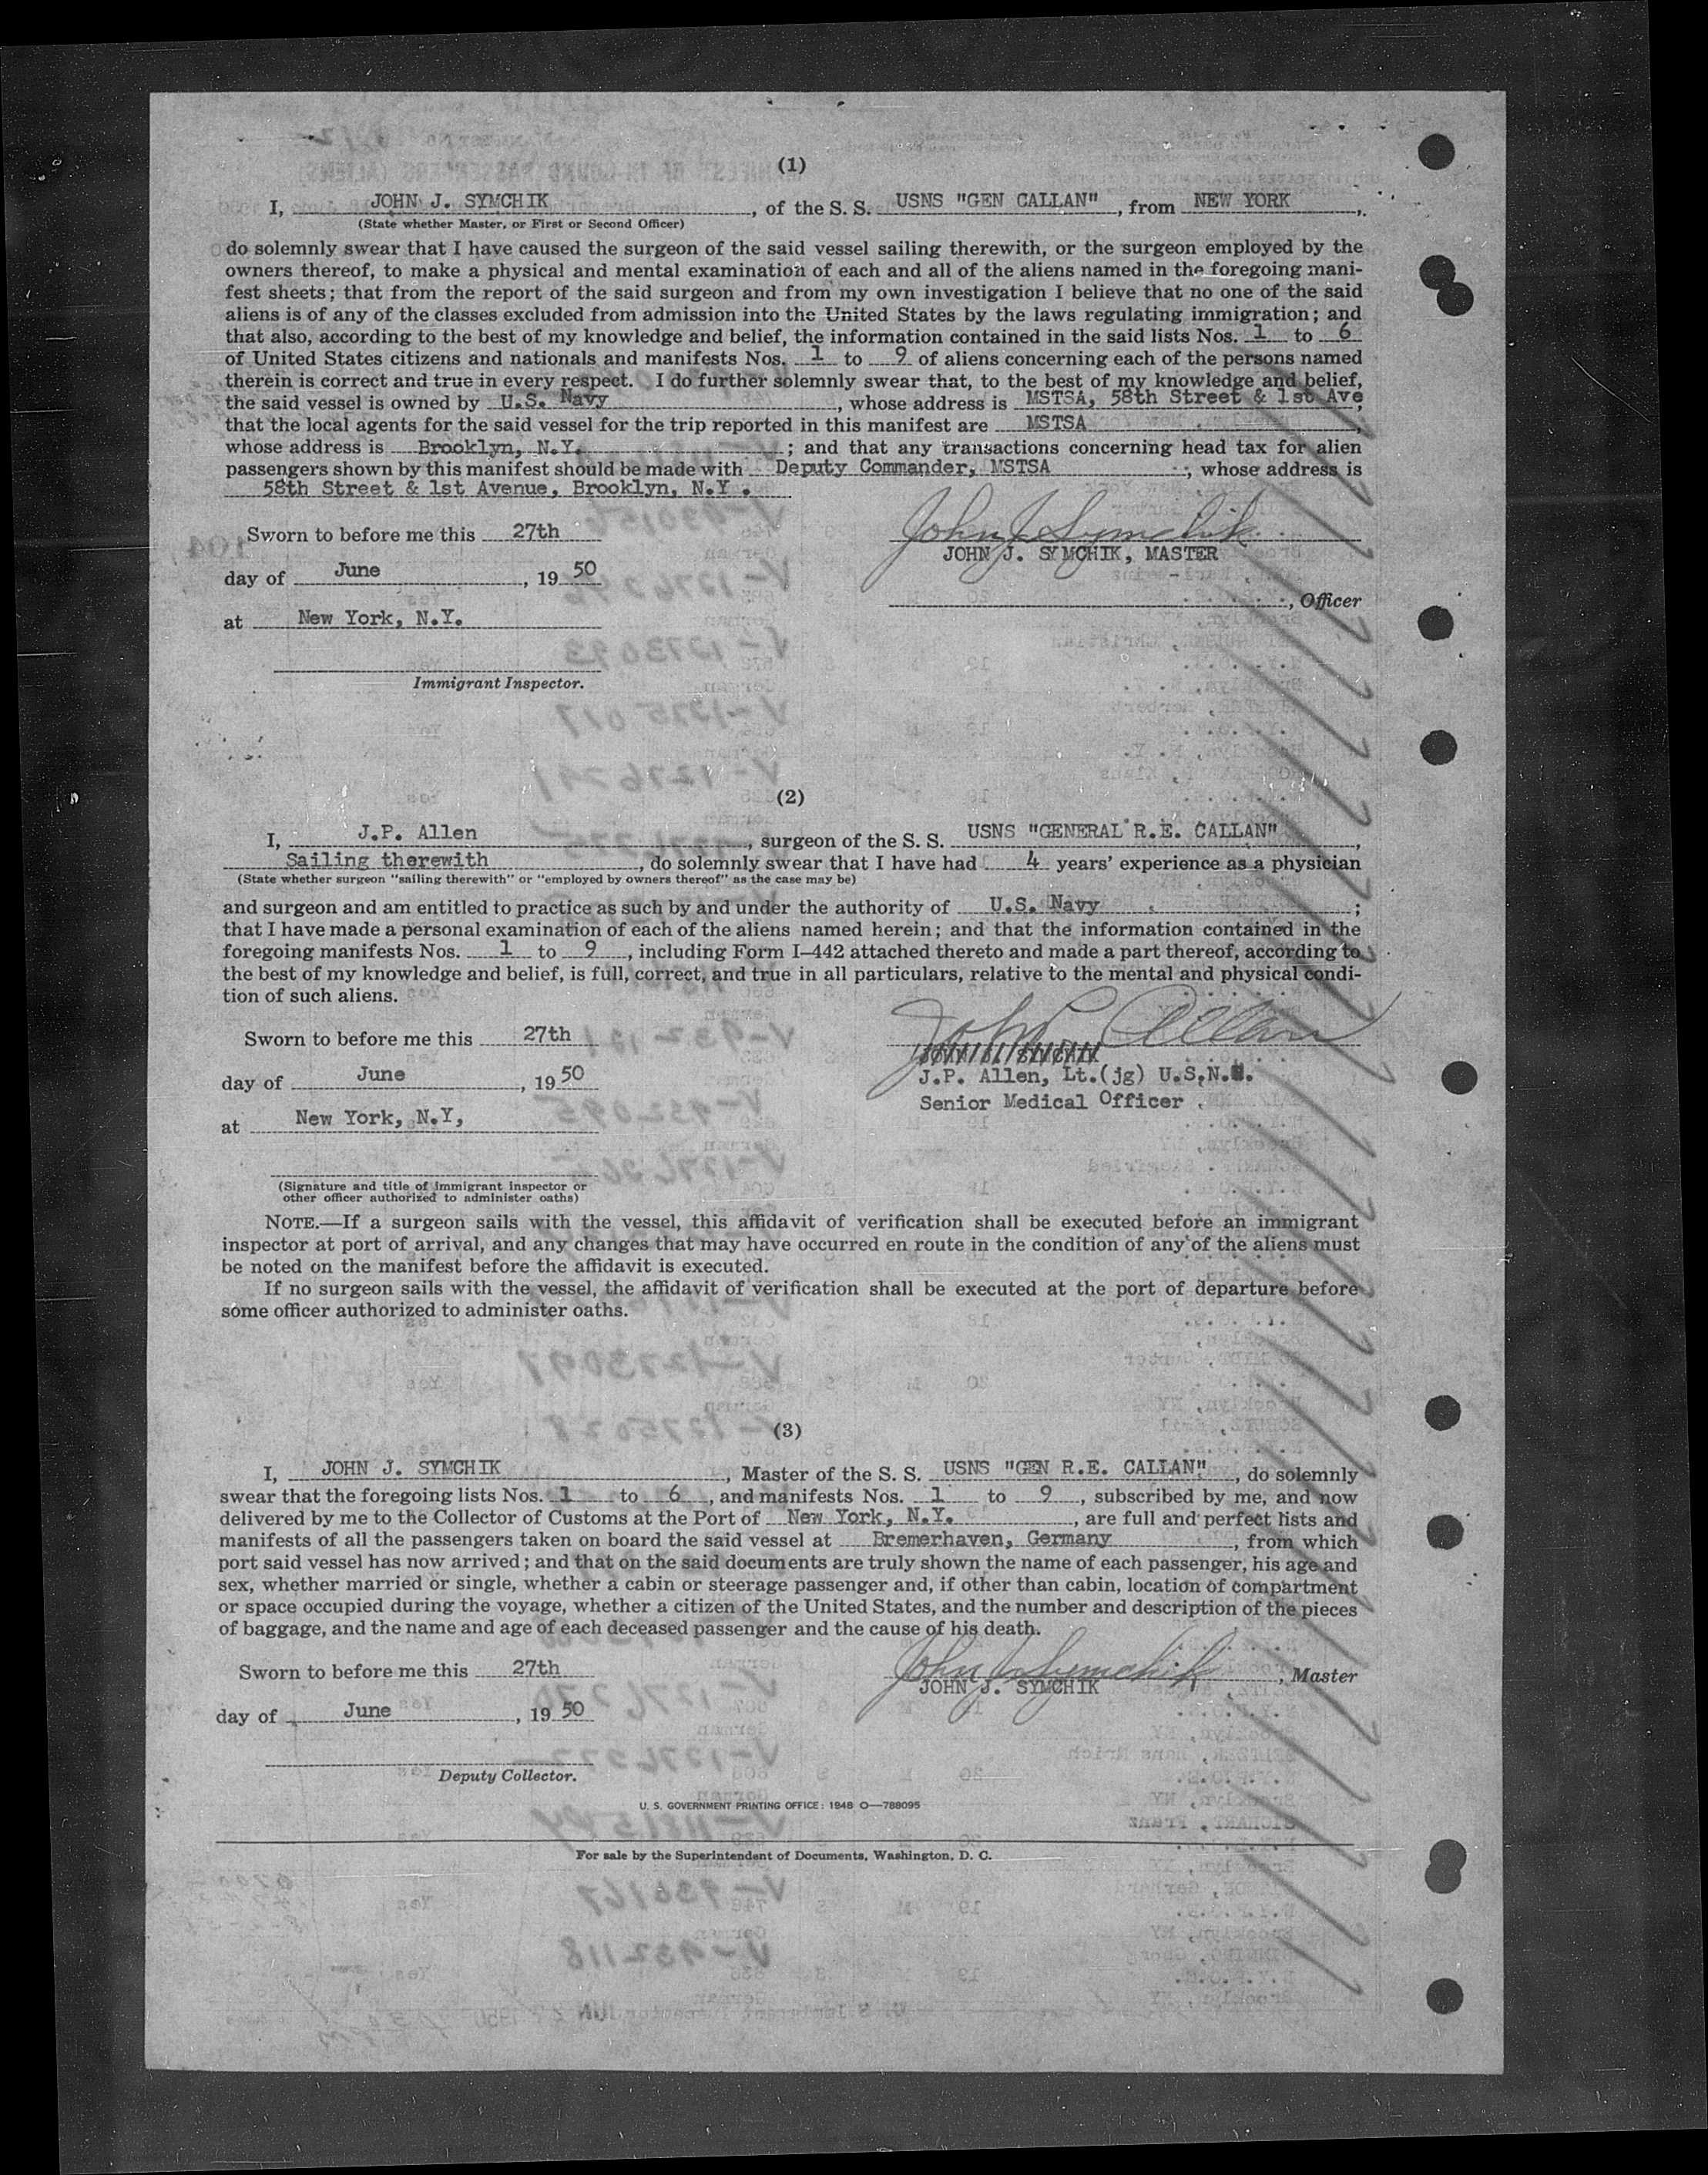 (1)
I, JOHN J. SYMCHIK, of the S. S. USNS "GEN CALLAN", from NEW YORK,
(State whether Master, or First or Second Officer)
do solemnly swear that I have caused the surgeon of the said vessel sailing therewith, or the surgeon employed by the
owners thereof, to make a physical and mental examination of each and all of the aliens named in the foregoing mani-
fest sheets; that from the report of the said surgeon and from my own investigation I believe that no one of the said
aliens is of any of the classes excluded from admission into the United States by the laws regulating immigration; and
that also, according to the best of my knowledge and belief, the information contained in the said lists Nos. 1 to 6
of United States citizens and nationals and manifests Nos. 1 to 9 of aliens concerning each of the persons named
therein is correct and true in every respect. I do further solemnly swear that, to the best of my knowledge and belief,
the said vessel is owned by U.S. Navy, whose address is MSTSA, 58th Street & 1st Ave,
that the local agents for the said vessel for the trip reported in this manifest are MSTSA,
whose address is Brooklyn, N.Y. ; and that any transactions concerning head tax for alien
passengers shown by this manifest should be made with Deputy Commander, MSTSA ; whose address is
58th Street & 1st Avenue, Brooklyn, N.Y .
Sworn to before me this 27th
John J Symchik
JOHN J. SYMCHIK, MASTER
day of June, 19 50
, Officer
at New York, N.Y.
Immigrant Inspector.
(2)
I, J.P. Allen, surgeon of the S. S. USNS "GENERAL R.E. CALLAN",
Sailing therewith, do solemnly swear that I have had 4 years' experience as a physician
(State whether surgeon "sailing therewith" or "employed by owners thereof" as the case may be)
and surgeon and am entitled to practice as such by and under the authority of U.S. Navy ;
that I have made a personal examination of each of the aliens named herein; and that the information contained in the
foregoing manifests Nos. 1 to 9, including Form I–442 attached thereto and made a part thereof, according to
the best of my knowledge and belief, is full, correct, and true in all particulars, relative to the mental and physical condi-
tion of such aliens.
Sworn to before me this 27th
John P Allen
day of June, 19 50
J.P. Allen, Lt.(jg) U.S.N.
Senior Medical Officer
at New York, N.Y,
(Signature and title of immigrant inspector or
other officer authorized to administer oaths)
NOTE.—If a surgeon sails with the vessel, this affidavit of verification shall be executed before an immigrant
inspector at port of arrival, and any changes that may have occurred en route in the condition of any of the aliens must
be noted on the manifest before the affidavit is executed.
If no surgeon sails with the vessel, the affidavit of verification shall be executed at the port of departure before
some officer authorized to administer oaths.
(3)
I, JOHN J. SYMCHIK, Master of the S. S. USNS "GEN R.E. CALLAN", do solemnly
swear that the foregoing lists Nos. 1 to 6, and manifests Nos. 1 to 9, subscribed by me, and now
delivered by me to the Collector of Customs at the Port of New York, N.Y., are full and perfect lists and
manifests of all the passengers taken on board the said vessel at Bremerhaven, Germany, from which
port said vessel has now arrived; and that on the said documents are truly shown the name of each passenger, his age and
sex, whether married or single, whether a cabin or steerage passenger and, if other than cabin, location of compartment
or space occupied during the voyage, whether a citizen of the United States, and the number and description of the pieces
of baggage, and the name and age of each deceased passenger and the cause of his death.
Sworn to before me this 27th
John J Symchik, Master
JOHN J. SYMCHIK
day of June, 19 50
Deputy Collector.
U. S. GOVERNMENT PRINTING OFFICE: 1948 O—788095
For sale by the Superintendent of Documents, Washington, D. C.